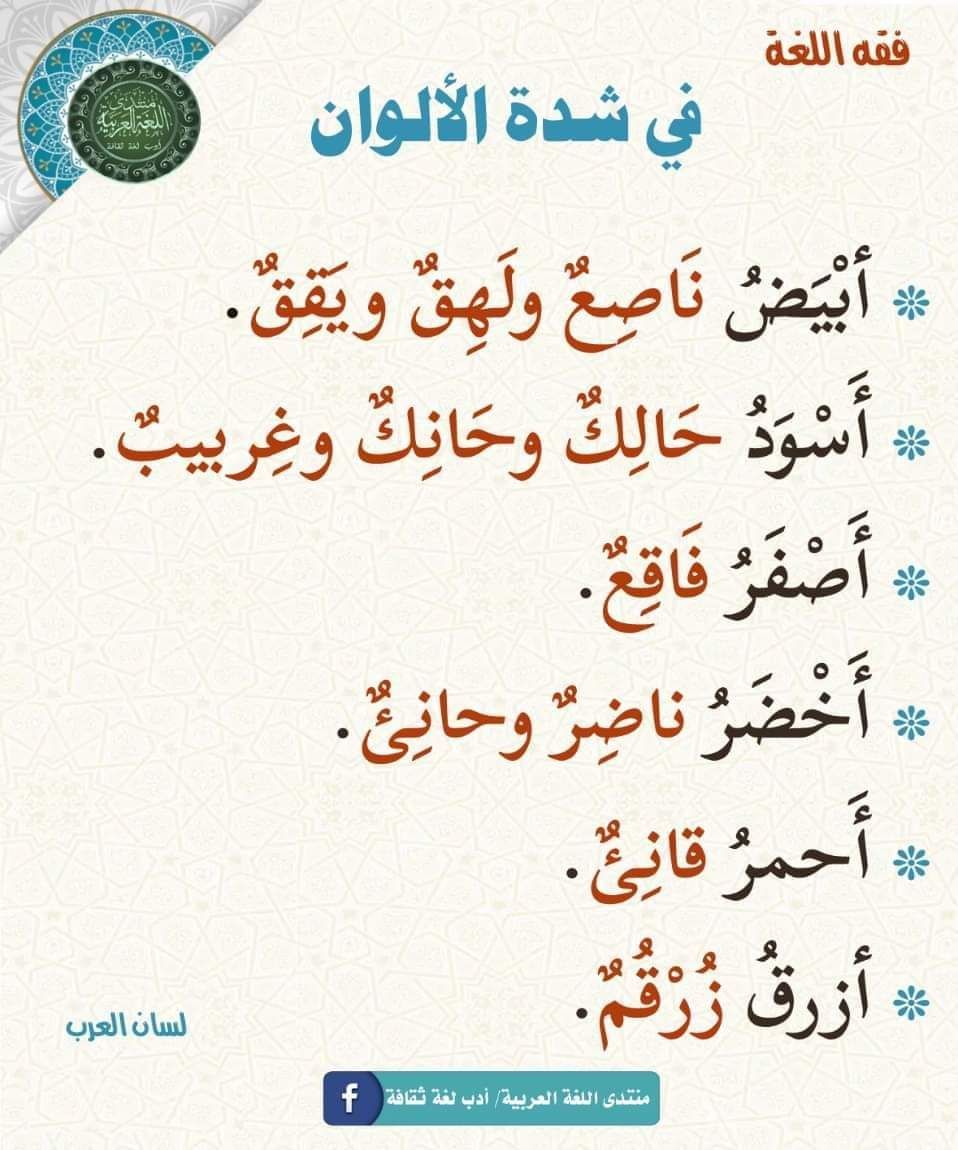 فقه اللغة
في شدة الألوان
منتدى
اللغة العربية
أدب لغة ثقافة
أبْيَضُ نَاصِعٌ ولَهِقٌ ويَقِقٌ.
أَسْوَدُ حَالِكٌ وحَانِكٌ وغِربيبٌ.
أَصْفَرُ فَاقِعٌ.
أَخْضَرُ ناضِرٌ وحانِئٌ.
أَحمرُ قانِئٌ.
أزرقُ زُرْقُمٌ.
لسان العرب
منتدى اللغة العربية/ أدب لغة ثقافة